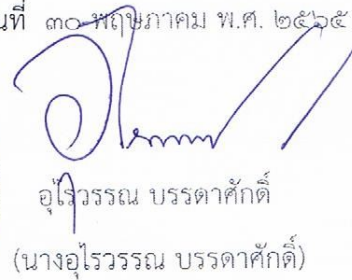 นที่ ๓๐ พฤษภาคม พ.ศ. ๒๕๖๕
อุไรวรรณ บรรดาศักดิ์
(นางอุไรวรรณ บรรดาศักดิ์)